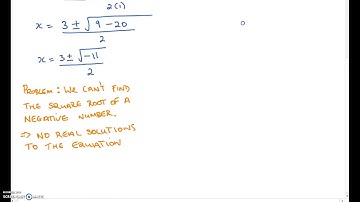 2(1)
x = 3 ± √9 - 20
2
x = 3 ± √-11
2
PROBLEM: WE CAN'T FIND
THE SQUARE ROOT OF A
NEGATIVE NUMBER.
⇒ NO REAL SOLUTIONS
TO THE EQUATION